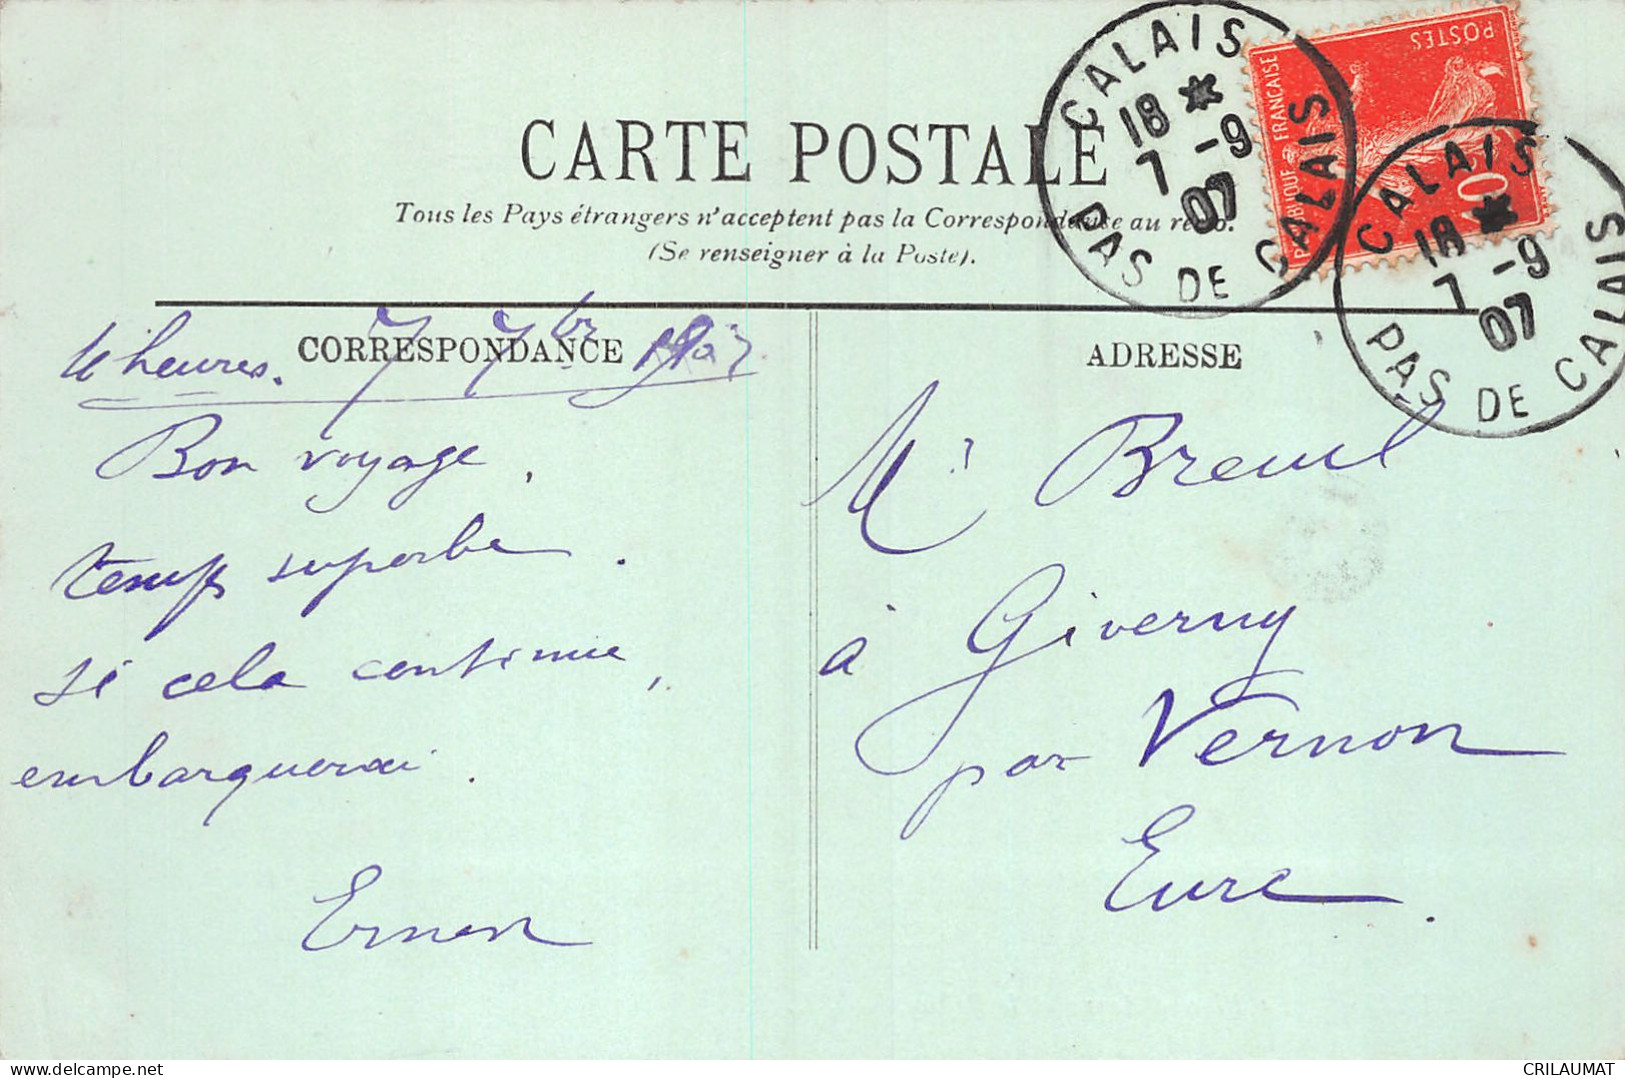 CARTE POSTALE
Tous les Pays étrangers n'acceptent pas la Correspondance au recto.
(Se renseigner à la Poste).
CORRESPONDANCE
ADRESSE
4 heures. 7 7bre 1907
Bon voyage,
temps superbe.
si cela continue,
embarquerai.
Ernen
Mr Breuil
à Giverny
par Vernon
Eure.
CALAIS
18 *
7 -9
07
PAS DE CALAIS
REPUBLIQUE FRANCAISE
POSTES
10
CALAIS
18 *
7 -9
07
PAS DE CALAIS
delcampe.net
CRILAUMAT